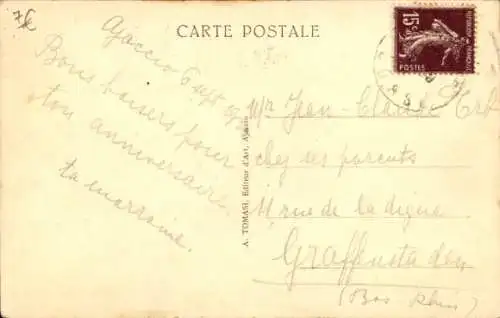 7€
CARTE POSTALE
15c
POSTES
Ajaccio 6 sept
Bons baisers pour
ton anniversaire.
ta marraine.
A. TOMASI, Editeur d'Art, Ajaccio
Mr Jean-Claude
chez ses parents
11 rue de la digue
Graffenstaden
(Bas Rhin)